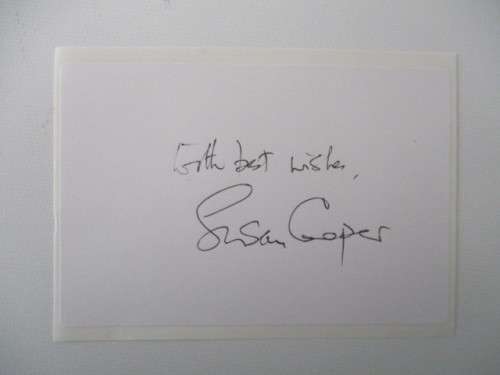 With best wishes,
Susan Cooper